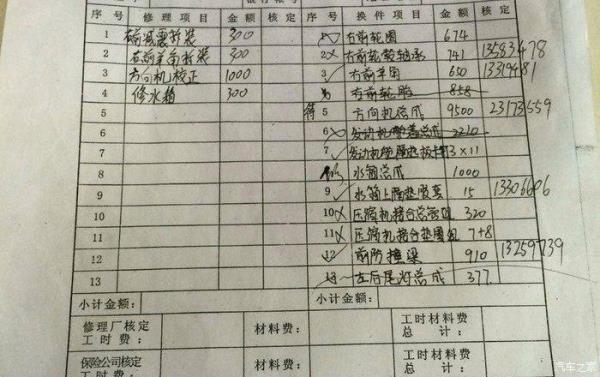 序号 修理项目 金额 核定 序号 换件项目 金额 核定
1 右前减震拆装 300 右前轮圈 674
2 右前羊角拆装 300 2 右前轮毂轴承 741 13583478
3 方向机校正 1000 3 右前羊角 650 13319481
4 修水箱 300 右前轮胎 858
5 待 5 方向机总成 9500 23173559
6 6 发动机 总成 2210
7 7 发动机 3×11
8 水箱总成 1000
9 9 水箱上 15 13306606
10 10 压缩机 320
11 11 压缩机 7+8
12 12 前防撞梁 910 13259739
13 13 左后尾灯总成 377
小计金额: 小计金额:
修理厂核定工时费: 材料费: 工时材料费总计:
保险公司核定工时费: 材料费: 工时材料费总计:
汽车之家